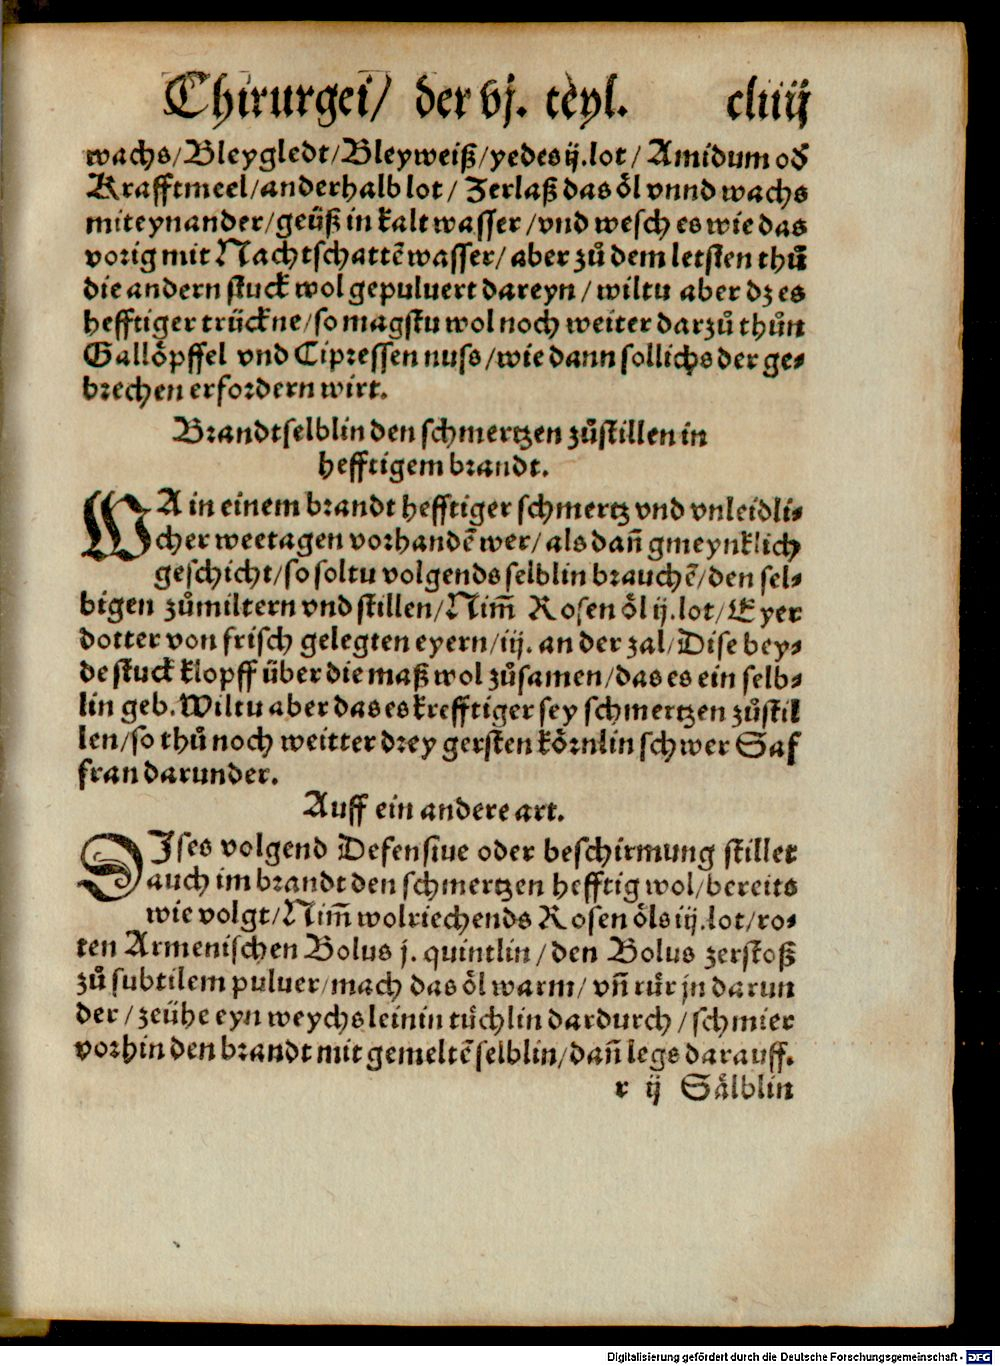 Chirurgei/ der vj. teyl. cliiij
wachs/Bleygledt/Bleyweiß/yedes ij.lot/ Amidum oď
Krafftmeel/anderhalb lot/ Zerlaß das öl vnnd wachs
miteynander/geüß in kalt wasser/vnd wesch es wie das
vorig mit Nachtschattē wasser/ aber zů dem letsten thů
die andern stuck wol gepuluert dareyn/ wiltu aber dz es
hefftiger trückne/so magstu wol noch weiter darzů thůn
Gallöpffel vnd Cipressen nuss/wie dann sollichs der ge⸗
brechen erfordern wirt.
Brandtselblin den schmertzen zůstillen in
hefftigem brandt.
WA in einem brandt hefftiger schmertz vnd vnleidli⸗
cher weetagen vorhandē wer/ als dañ gmeynklich
geschicht/so soltu volgends selblin brauchē/den sel⸗
bigen zůmiltern vnd stillen/Nim̄ Rosen öl ij. lot/ Eyer
dotter von frisch gelegten eyern/iij. an der zal/Dise bey⸗
de stuck klopff über die maß wol zůsamen/das es ein selb⸗
lin geb. Wiltu aber das es krefftiger sey schmertzen zůstil
len/so thů noch weitter drey gersten körnlin schwer Saf
fran darunder.
Auff ein andere art.
DIses volgend Defensiue oder beschirmung stillet
auch im brandt den schmertzen hefftig wol/bereits
wie volgt/Nim̄ wolriechends Rosen öls iij.lot/ro⸗
ten Armenischen Bolus j. quintlin/den Bolus zerstoß
zů subtilem puluer/mach das öl warm/ vñ růr jn darun
der/zeühe eyn weychs leinin tüchlin dardurch/schmier
vorhin den brandt mit gemeltē selblin/dañ legs darauff.
r ij Sälblin
Digitalisierung gefördert durch die Deutsche Forschungsgemeinschaft - DFG